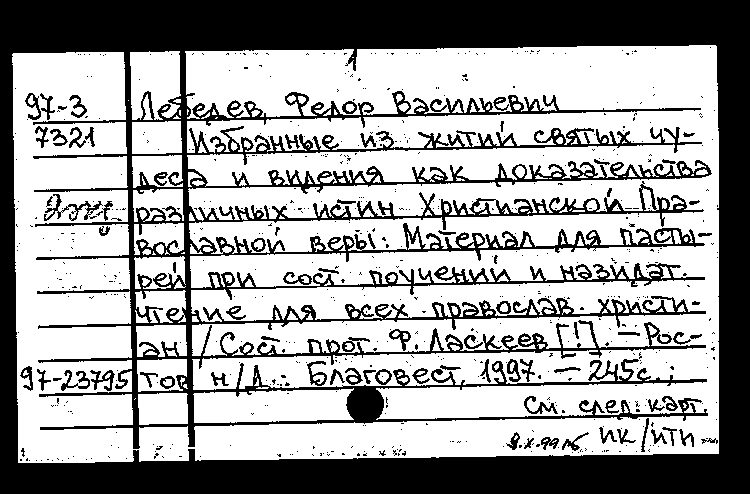 1
97-3 Лебедев, Федор Васильевич
7321 Избранные из житий святых чу-
деса и видения как доказательства
2экз. различных истин Христианской Пра-
вославной веры: Материал для пасты-
рей при сост. поучений и назидат.
чтение для всех православ. христи-
ан / Сост. прот. Ф. Ласкеев [!]. — Рос-
97-23795 тов н/Д.: Благовест, 1997. — 245с.;
См. след. карт.
ИК/ИТИ